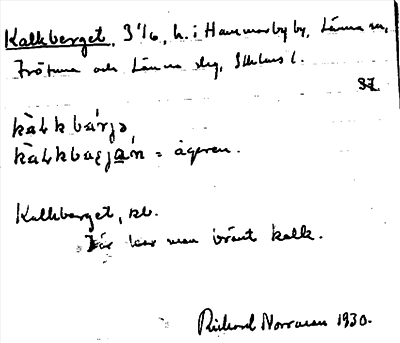 Kalkberget, 3 1/6, h. i Hammarby by, Länna sn,
Frötuna och Länna slg, Sthlms l.
87
kàlkbárjə
kàlkbærjan = ägaren.
Kalkberget, kb.
Här har man bränt kalk.
Richard Norrman 1930.